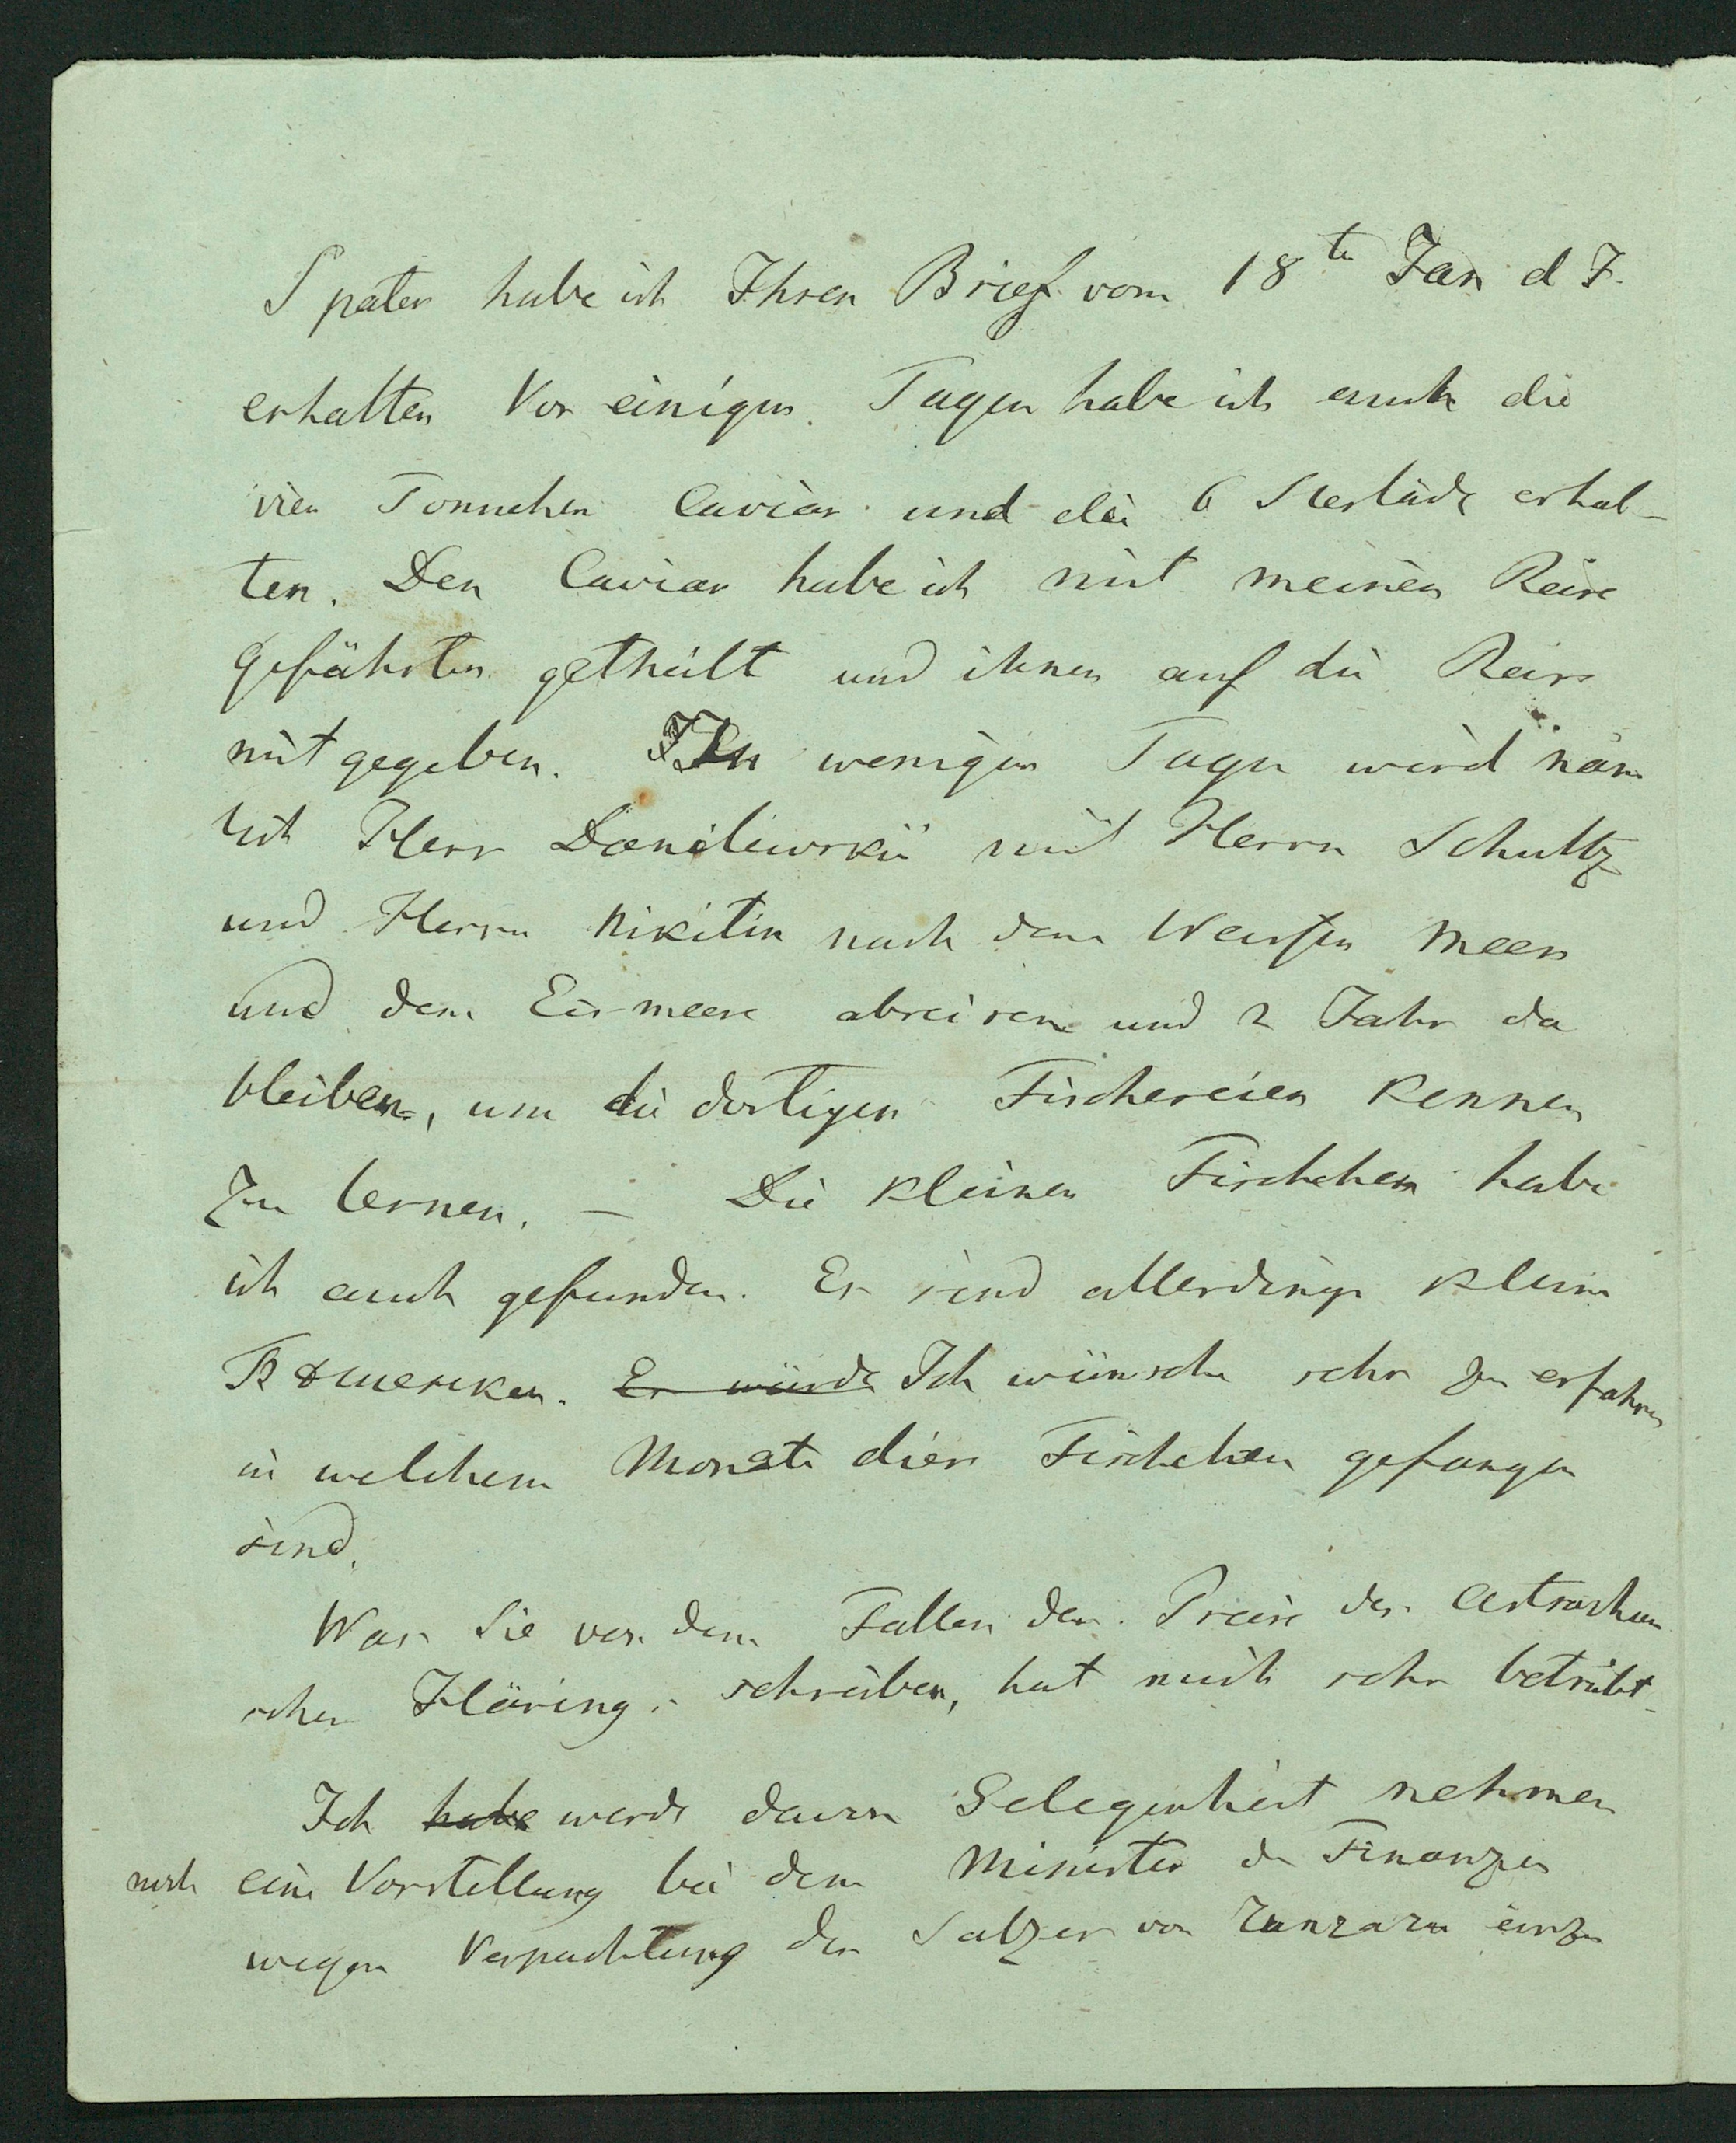 Später habe ich Ihren Brief vom 18ten Jan d J.
erhalten Vor einigen Tagen habe ich auch die
vier Tonnchen Caviar und die 6 erhal-
ten. Den Caviar habe ich mit meinen Reise
gefährten getheilt und ihnen auf die Reise
mitgegeben. In wenigen Tagen wird näm
lich Herr Danilewskii mit Herrn Schultz
und Herrn Nikitin nach dem Weissen Meere
und dem Eismeere abreisen und 2 Jahr da
bleiben, um die dortigen Fischereien kennen
zu lernen. – Die kleinen Fischchen habe
ich auch gefunden. Es sind allerdings kleine
Es würde Ich wünsche sehr zu erfahren
in welchem Monate diese Fischchen gefangen
sind.
Was Sie von dem Fallen der Preise des Astrachan
schen Härings schreiben, hat mich sehr betrübt
Ich habe werde davon Gelegenheit nehmen
noch eine Vorstellung bei dem Minister der Finanzen
wegen Verpachtung der Salzseen von einzu